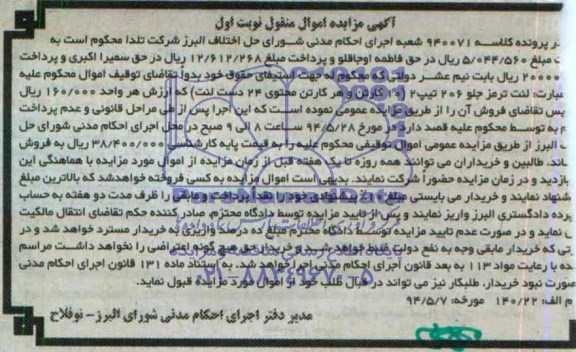 آگهی مزایده اموال منقول نوبت اول
در پرونده کلاسه ۹۴۰۰۷۱ شعبه اجرای احکام مدنی شورای حل اختلاف البرز شرکت تلدا محکوم است به
مبلغ ۵/۰۴۴/۵۶۰ ریال در حق فاطمه اوجاقلو و پرداخت مبلغ ۱۲/۶۱۲/۲۶۸ ریال در حق سمیرا اکبری و پرداخت
۲۰۰۰۰ ریال بابت نیم عشر دولتی که محکوم له جهت استیفای حقوق خود بدوا تقاضای توقیف اموال محکوم علیه
عبارت: لنت ترمز جلو ۲۰۶ تیپ۲ (۱۰ کارتن و هر کارتن محتوی ۲۴ دست لنت) که ارزش هر واحد ۱۶۰/۰۰۰ ریال
پس تقاضای فروش آن را از طریق مزایده عمومی نموده است که این اجرا پس از طی مراحل قانونی و عدم پرداخت
به توسط محکوم علیه قصد دارد در مورخ ۹۴/۵/۲۸ ساعت ۸ الی ۹ صبح در محل اجرای احکام مدنی شورای حل
البرز از طریق مزایده عمومی اموال توقیفی محکوم علیه را به قیمت پایه کارشناسی ۳۸/۴۰۰/۰۰۰ ریال به فروش
ساند، طالبین و خریداران می توانند همه روزه تا یک هفته قبل از زمان مزایده از اموال مورد مزایده با هماهنگی این
بازدید و در زمان مزایده حضورا شرکت نمایند. بدیهی است اموال مزایده به کسی فروخته خواهدشد که بالاترین مبلغ
شنهاد نمایند و خریدار می بایستی مبلغ ۱۰٪ پیشنهادی خود را نقدا پرداخت و مابقی را ظرف مدت دو هفته به حساب
پرده دادگستری البرز واریز نمایند و پس از تایید مزایده توسط دادگاه محترم، صادر کننده حکم تقاضای انتقال مالکیت
نماید و در صورت عدم تایید مزایده توسط دادگاه محترم مبلغ ده درصد واریزی به خریدار مسترد خواهد شد و در
یتی که خریدار مابقی وجه به نفع دولت ضبط خواهد شد و خریدار حق هیچ گونه اعتراضی را نخواهد داشت مراسم
ده با رعایت مواد ۱۱۳ به بعد قانون اجرای احکام مدنی اجرا خواهد شد. به استناد ماده ۱۳۱ قانون اجرای احکام مدنی
صورت نبود خریدار، طلبکار نیز می تواند در قبال طلب خود از اموال مورد مزایده قبول نماید.
م الف: ۱۴۰/۲۲ مورخه: ۹۴/۵/۷
مدیر دفتر اجرای احکام مدنی شورای البرز- نوفلاح
پایگاه اطلاع رسانی مناقصه و مزایده
۰۲۱-۸۸۳۴۹۶۷۰-۵